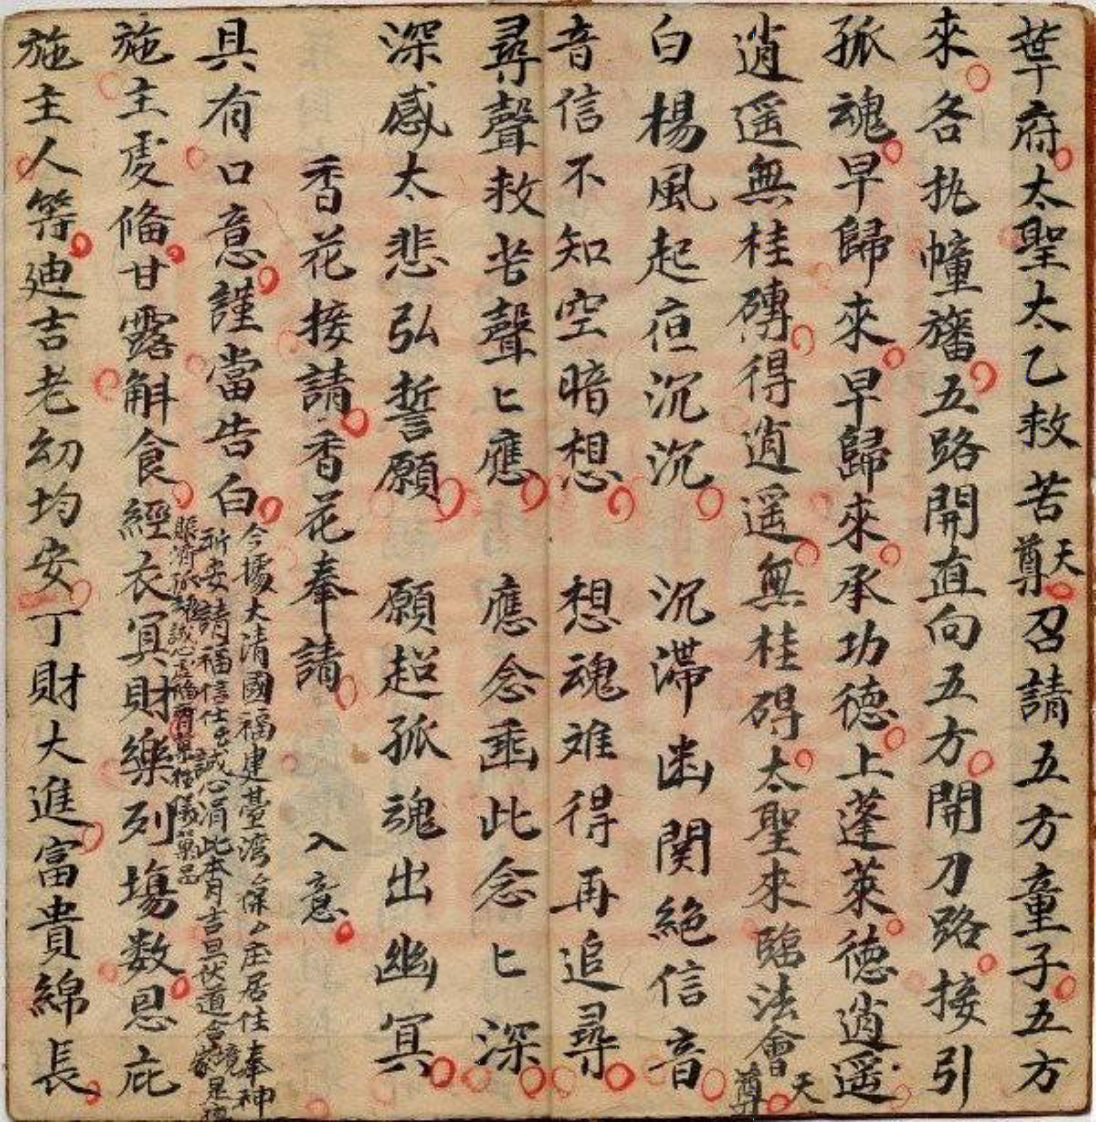 葉府太聖太乙救苦天尊召請五方童子五方
來各执幢旛五路開直向五方開刀路接引
孤魂早歸來早歸來承功德上蓬萊德逍遥
逍遥無桂磚得逍遥無桂碍太聖來臨法會天尊
白楊風起亱沉沉 沉滯幽関絕信音
音信不知空暗想 想魂难得再追尋
尋聲救苦聲匕應 應念垂此念匕深
深感太悲弘誓願 願超孤魂出幽冥
香花接請香花奉請 入意
具有口意謹當告白
今據大清國福建臺湾保庄居住奉神
請福信士誠心涓此本月吉旦伏道
賑濟孤魂誠心
施主虔備甘露斛食經衣冥財樂列塲数恩庇
施主人等廸吉老幼均安丁財大進富貴綿長